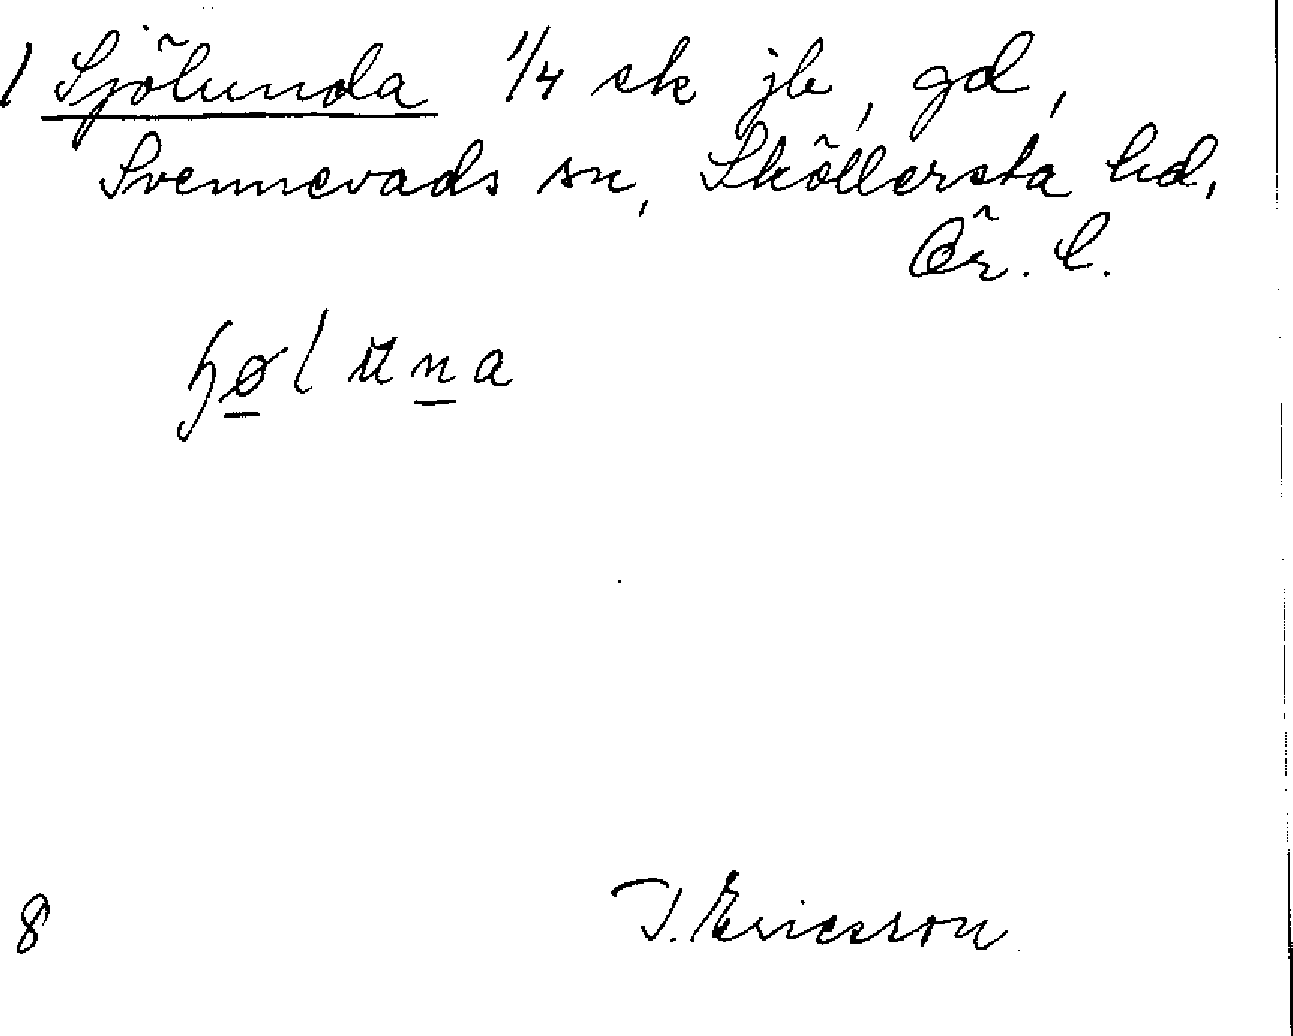 1 Sjölunda 1/4 sk jb, gd,
Svennevads sn, Sköllersta hd,
Ör. l.
ɧøl ɯna
8
T. Ericsson